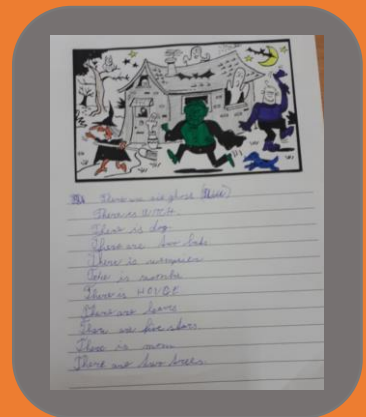 There are six ghost (blue)
There is WITCH.
There is dog.
There are two bats
There is
There is
There is HOUSE
There are leaves
There are five stars
There is moon
There are two trees.